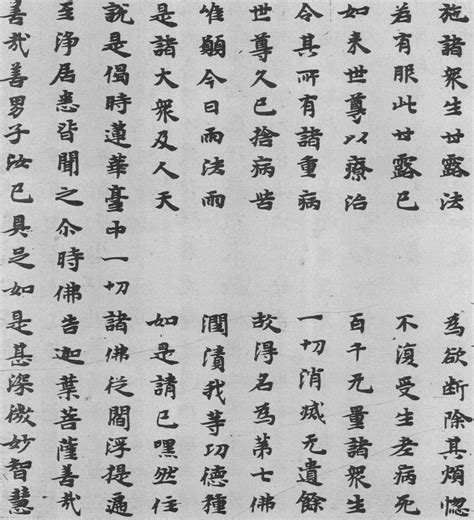 施諸衆生甘露法　為欲断除其煩惱
若有服此甘露已　不復受生老病死
如来世尊以療治　百千无量諸衆生
令其所有諸重病　一切消滅无遺餘
世尊久已捨病苦　故得名為第七佛
唯願今日雨法雨　潤漬我等功德種
是諸大衆及人天　如是請已嘿然住
說是偈時蓮華臺中一切諸佛從閻浮提遍
至淨居悉皆聞之尒時佛告迦葉菩薩善哉
善哉善男子汝已具足如是甚深微妙智慧